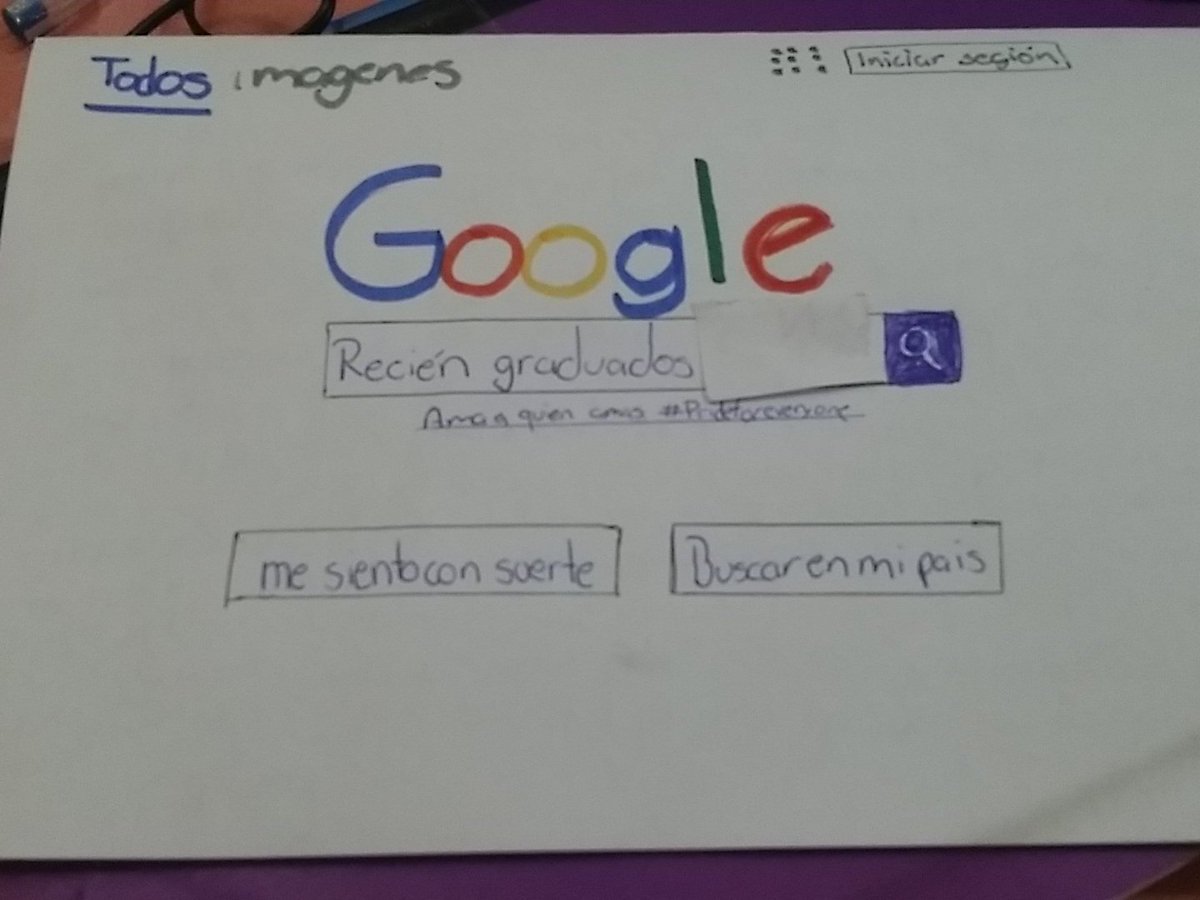 Todos imagenes
Iniciar seción
Google
Recién graduados
Ama a quien amas #Prideforeveryone
me siento con suerte
Buscar en mi pais